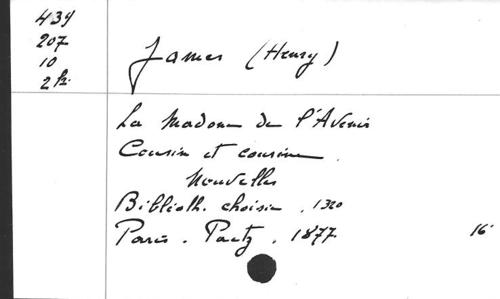 439
207
10
2 fr.
James (Henry)
La Madone de l'Avenir
Cousin et cousine.
Nouvelles
Biblioth. choisie. 1320
Paris. Paetz. 1877. 16°